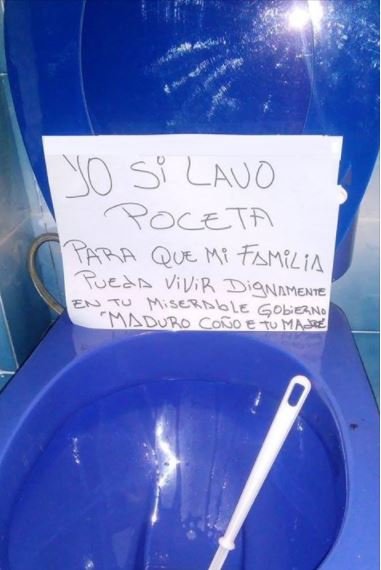 YO SI LAVO
POCETA
PARA QUE MI FAMILIA
PUEDA VIVIR DIGNAMENTE
EN TU MISERABLE GOBIERNO
"MADURO COÑO E TU MADRE"